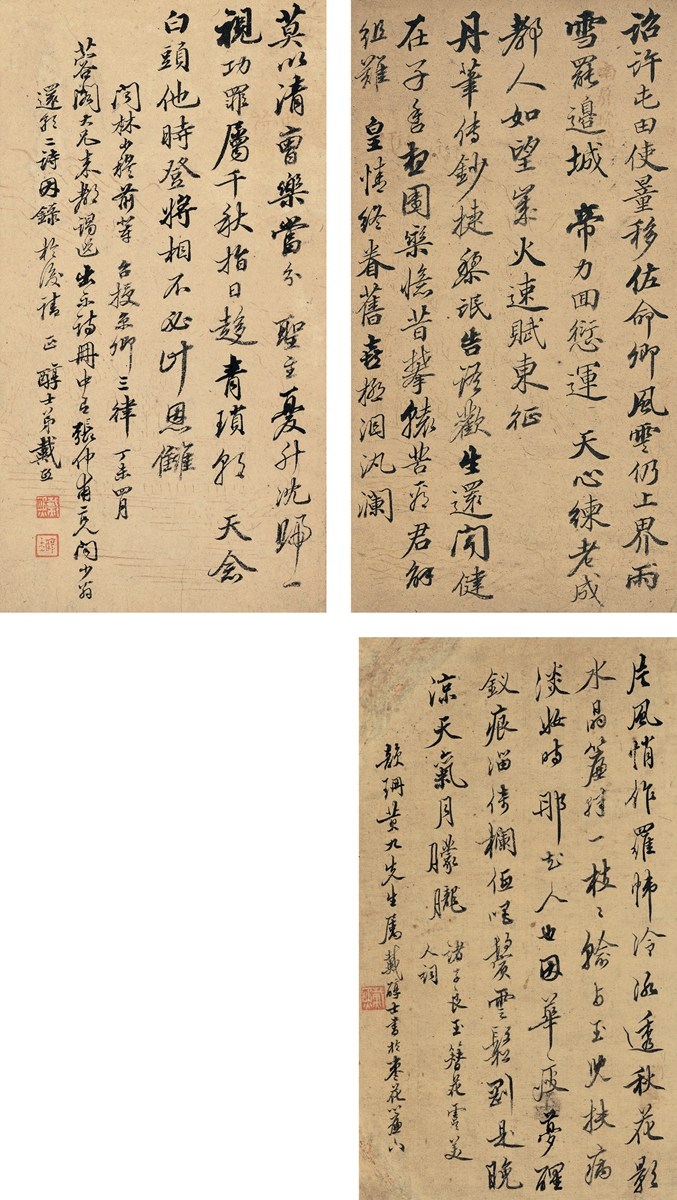 詔許屯田使量移佐命卿風雲仍上界雨
雪罷邊城 帝力回愆運 天心練老成
都人如望歲火速賦東征
丹筆傳鈔捷黎氓告語歡生還聞健
在子密 圍欒憶昔攀轅苦 君解
組難 皇情終眷舊喜極淚汍瀾
莫以清曹樂當分 聖主憂升沈歸一
視功罪屬千秋指日趨青瑣 天念
白頭他時登將相不必計恩讎
聞林少穆前輩 召授京卿三律 丁未四月
蓉閣大兄來都謁選出示詩冊中有張仲甫 聞少翁
還朝三詩因錄於後請正 醇士弟戴熙
片風悄作羅幃冷深透秋花影
水晶簾 一枝枝輸與玉 扶病
淡妝時 那知人也因華瘦夢醒
釵痕溜倚欄 鬢雲鬆剛是晚
涼天氣月朦朧
諸子良玉簪花虞美
人詞
韻珊黃九先生屬戴醇士書於棗花簾下